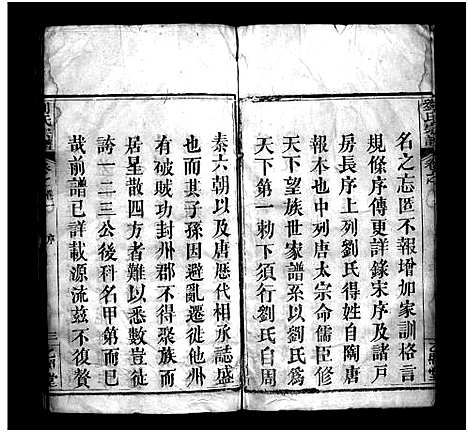 名之志匿不報增加家訓格言
規條序傳更詳錄宋序及諸戶
房長序上列劉氏得姓自陶唐
也中列唐太宗命儒臣修
天下望族世家譜系以劉氏為
天下第一勅下須行劉氏自周
秦六朝以及唐歷代相承誌盛
也而其子孫因避亂遷徙他州
有破賊功封州郡不得聚族而
居呈散四方者難以悉數豈徒
誇一二三公後科名甲第而已
哉前譜已詳載源流茲不復贅
劉氏宗譜
序